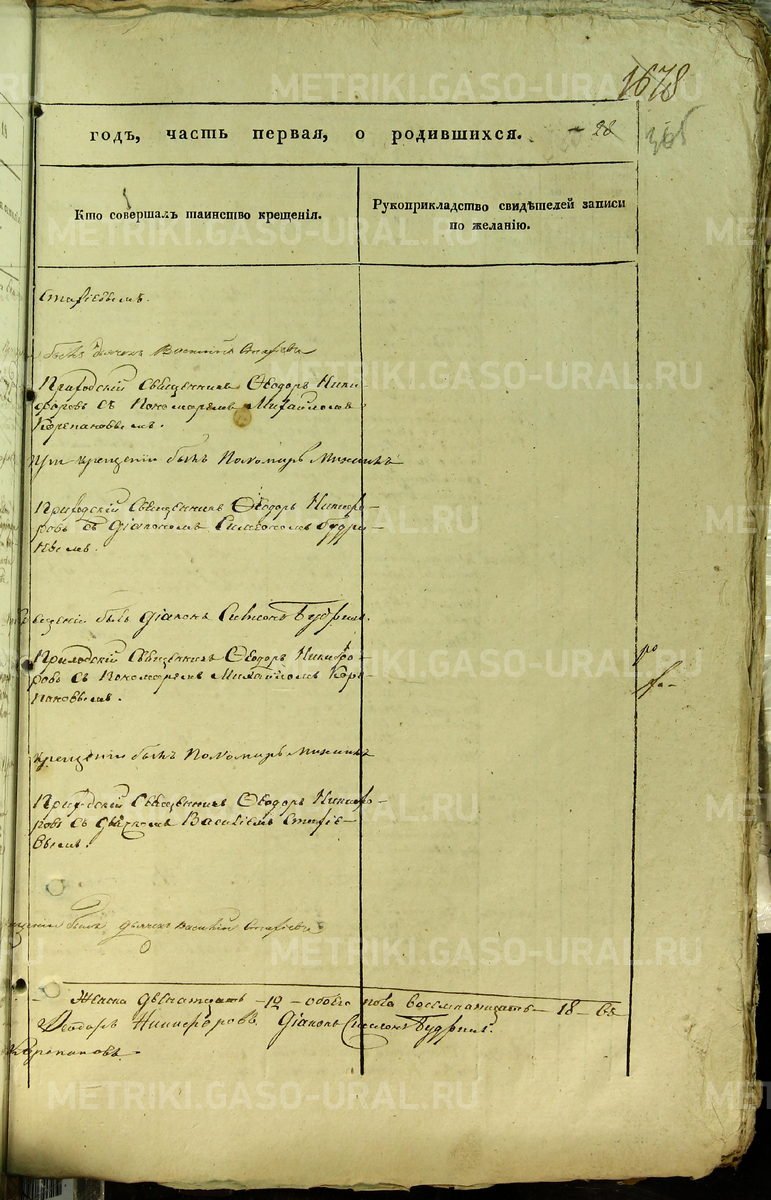 1678
годъ, часть первая, о родившихся. — 28
365
Кто совершалъ таинство крещенія.
Рукоприкладство свидѣтелей записи
по желанію.
Стафіевымъ.
былъ дьячекъ Василій Стафіевъ
Приходскій Священникъ Ѳеодоръ Ники-
форовъ съ Пономаремъ Михайломъ
Корепановымъ.
При крещеніи былъ Пономарь Михаилъ
Приходскій Священникъ Ѳеодоръ Никифо-
ровъ съ Діакономъ Симеономъ Будри-
нымъ.
крещеніи былъ Діаконъ Симеонъ Будринъ.
Приходскій Священникъ Ѳеодоръ Никифо-
ровъ съ Пономаремъ Михайломъ Коре-
пановымъ.
крещеніи былъ Пономарь Михаилъ
Приходскій Священникъ Ѳеодоръ Никифо-
ровъ съ дьячкомъ Василіемъ Стафіе-
вымъ.
крещеніи былъ дьячекъ Василій Стафіевъ
Женска двенатцать — 12 — обоего пола восемнатцать — 18 —
Ѳеодоръ Никифоровъ Діаконъ Симеонъ Будринъ.
Корепановъ.
METRIKI.GASO-URAL.RU